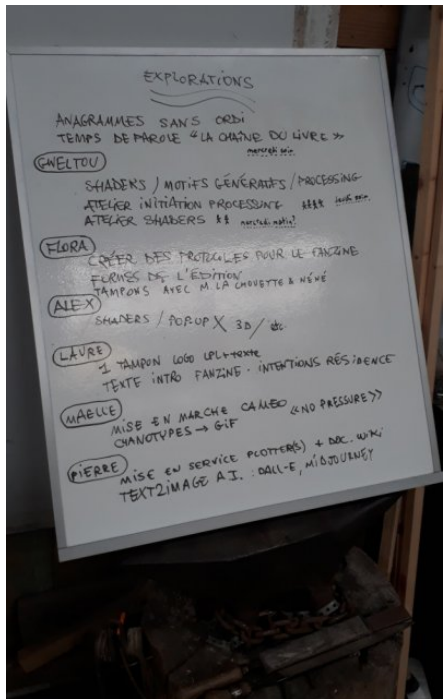 EXPLORATIONS
ANAGRAMMES SANS ORDI
TEMPS DE PAROLE "LA CHAÎNE DU LIVRE"
mercredi soir
GWELTOU
SHADERS / MOTIFS GÉNÉRATIFS / PROCESSING
ATELIER INITIATION PROCESSING **** jeudi soir
ATELIER SHADERS ** mercredi matin?
FLORA
CRÉER DES PROTOCOLES POUR LE FANZINE
FORMES DE L'ÉDITION
TAMPONS AVEC M. LA CHOUETTE & NÉNÉ
ALEX
SHADERS / POP-UP X 3D / etc
LAURE
1 TAMPON LOGO LPL + texte
TEXTE INTRO FANZINE - INTENTIONS RÉSIDENCE
MAELLE
MISE EN MARCHE CAMEO «NO PRESSURE»
CYANOTYPES → GIF
PIERRE
MISE EN SERVICE PLOTTER(S) + DOC. WIKI
TEXT2IMAGE A.I. : DALL-E, MIDJOURNEY